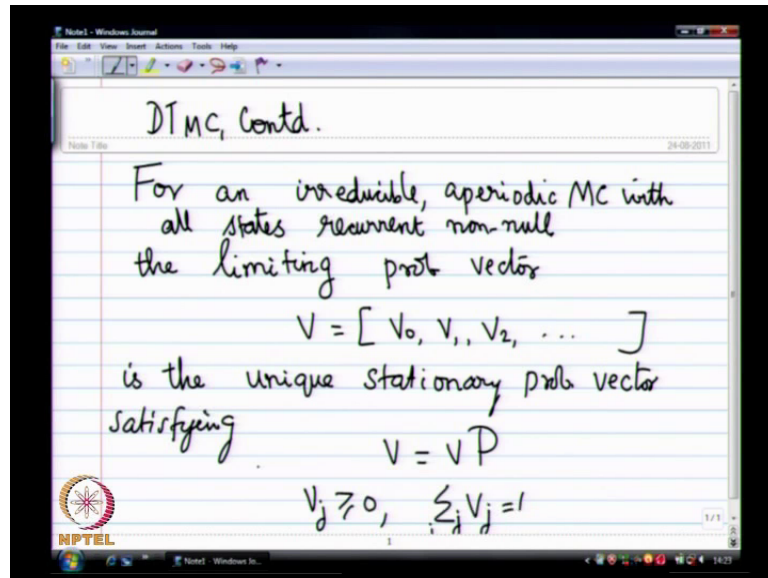 Note1 - Windows Journal
File Edit View Insert Actions Tools Help
DTMC, Contd.
Note Title
24-08-2011
For an irreducible, aperiodic MC with
all states recurrent non-null
the limiting prob vector
V = [ V₀, V₁, V₂, ... ]
is the unique stationary prob. vector
satisfying
V = VP
Vⱼ ≥ 0, Σⱼ Vⱼ = 1
1/1
NPTEL
1
Note1 - Windows Jo...
14:23